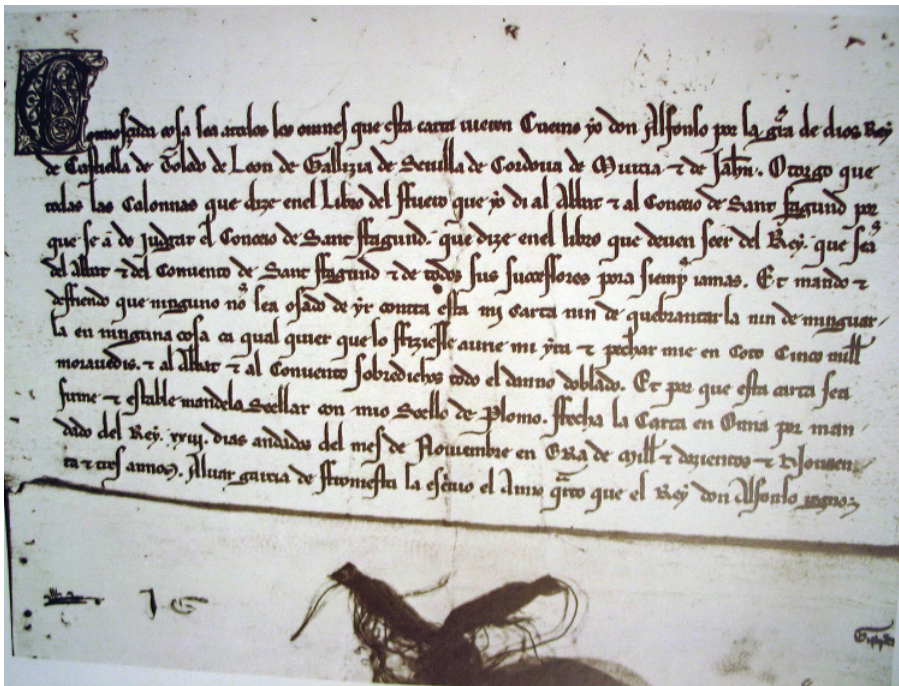 Connosçuda cosa sea atodos los omnes que esta carta vieren Cuemo yo don Alfonso por la gra de dios Rey
de Castiella de Toledo de Leon de Gallizia de Sevilla de Cordova de Murcia ⁊ de Jahn. Otorgo que
todas las Calonnas que dize enel Libro del ffuero que yo di al Abbat ⁊ al Conceio de Sant ffagund por
que se á de judgar el Conceio de Sant ffagund. que dize enel libro que deven seer del Rey. que sea
del abbat ⁊ del Convento de Sant ffagund ⁊ de todos sus successores pora siempre iamas. Et mando ⁊
deffiendo que ninguno no sea osado de yr contra esta mi carta nin de quebrantar la nin de minguar
la en ninguna cosa ca qual quier que lo ffiziesse aurie mi yra ⁊ pechar mie en Coto Cinco mill
moravedis. ⁊ al Abbat ⁊ al Convento sobredichos todo el danno doblado. Et por que esta carta sea
firme ⁊ estable mandela Seellar con mio Seello de Plomo. ffecha la Carta en Onna por man
dado del Rey. xxiij. dias andados del mes de Noviembre en ERa de Mill ⁊ dozientos ⁊ Nonaen
ta ⁊ tres annos. Alvar garcia de ffromesta la escrivo el Anno quarto que el Rey don Alfonso regno